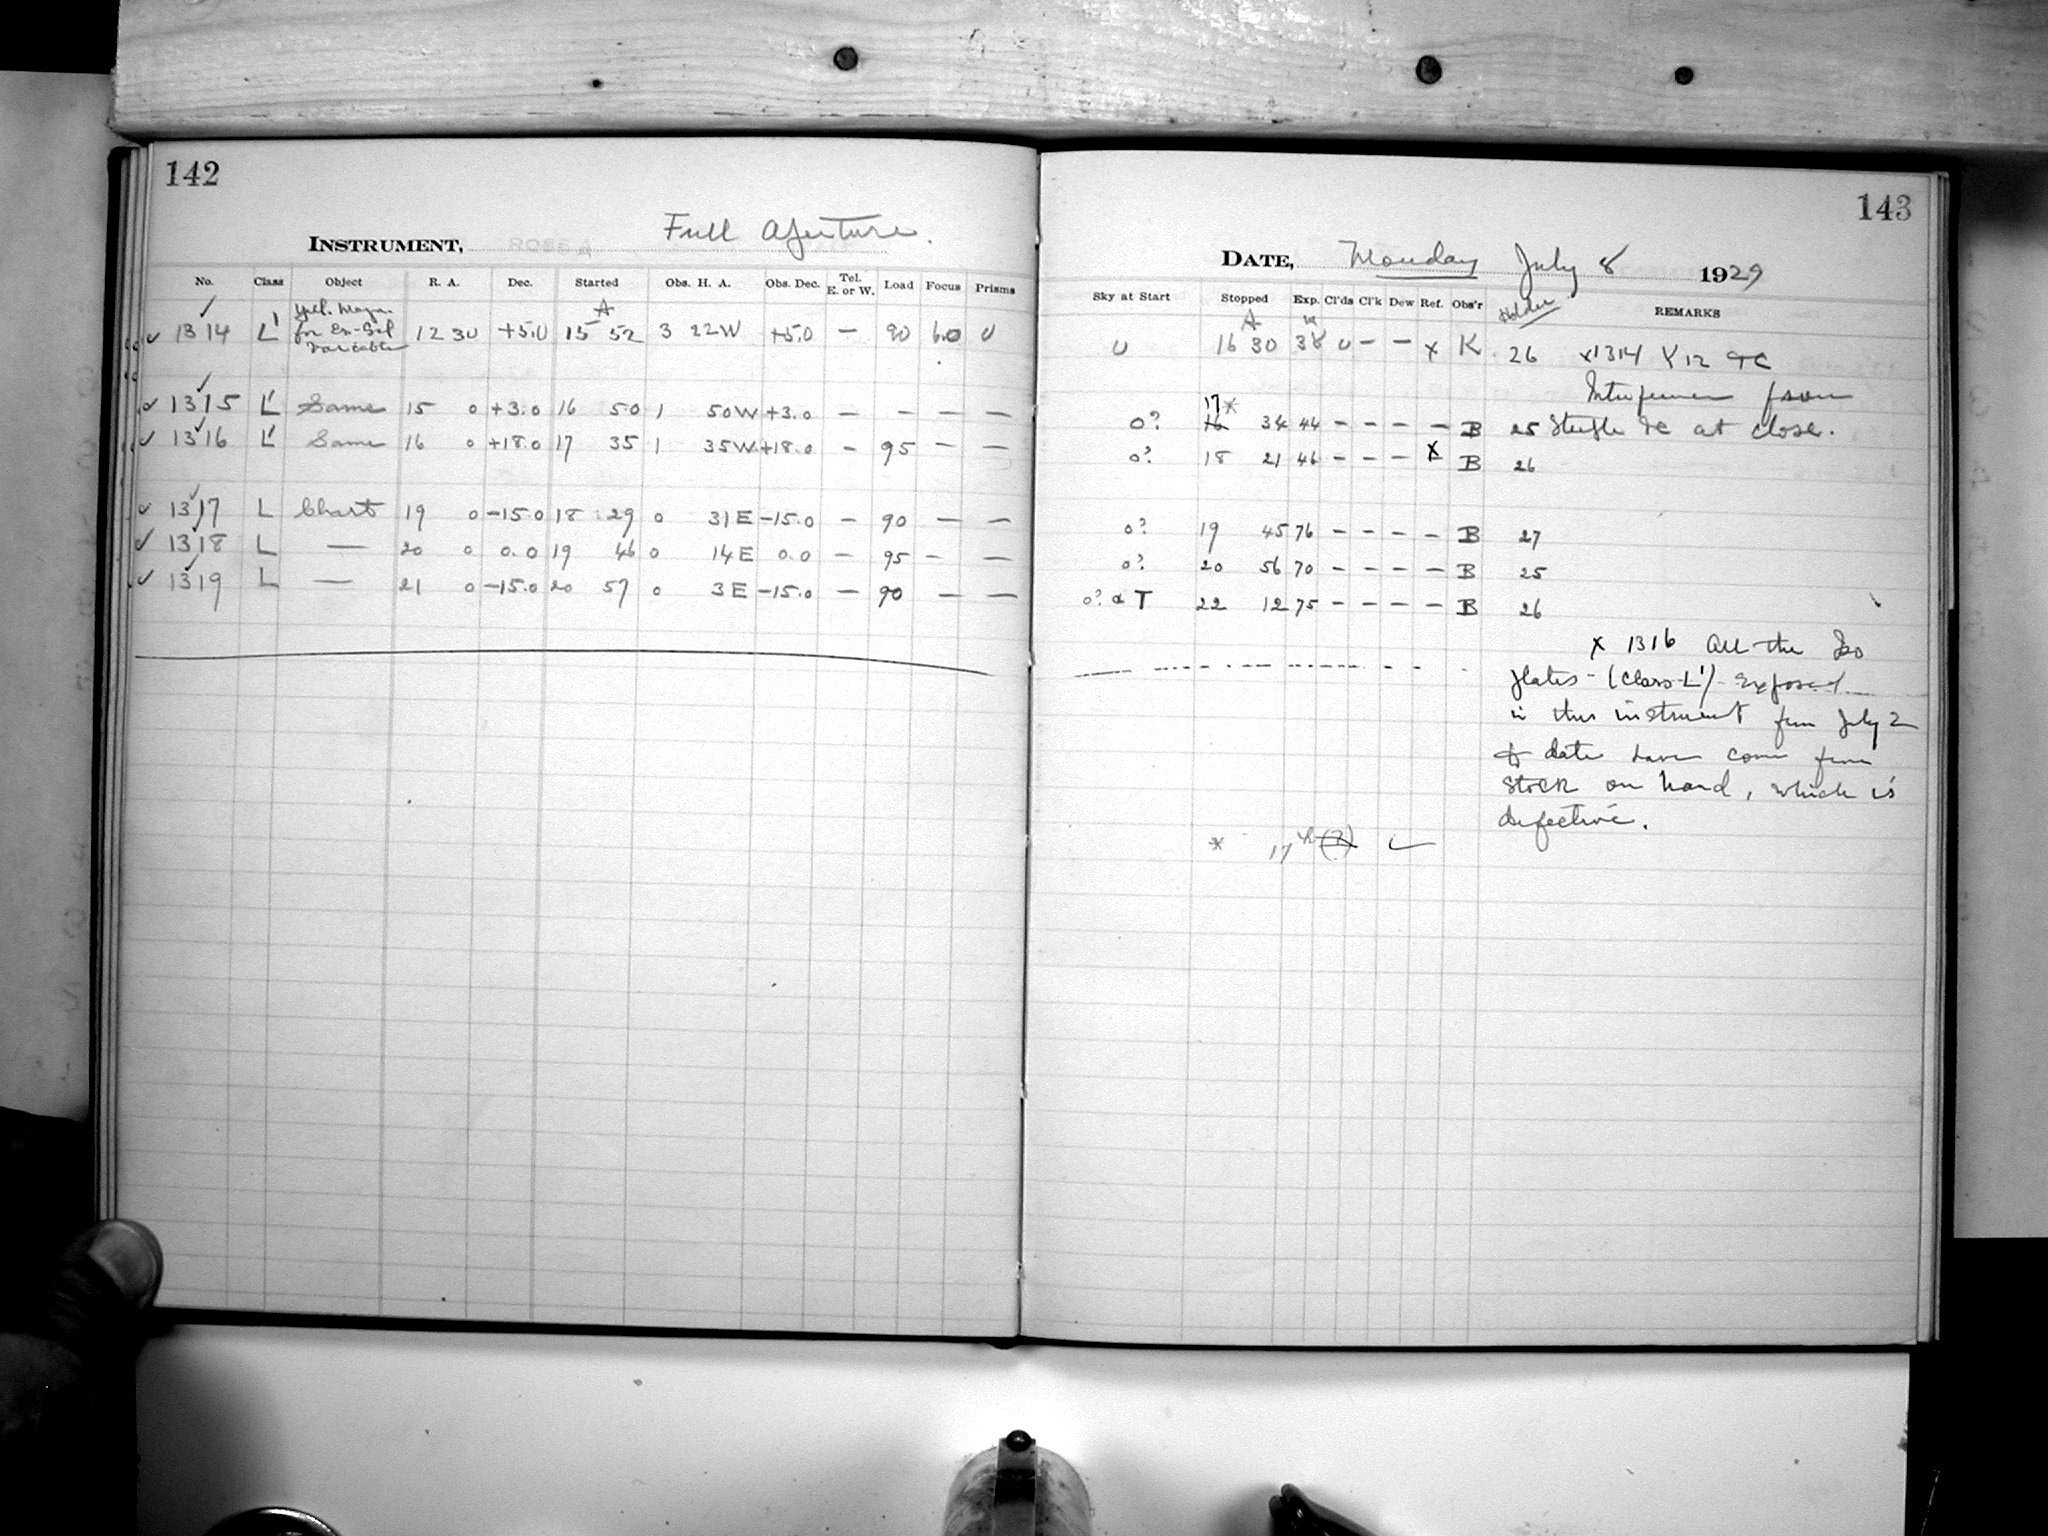 142
INSTRUMENT, Full Aperture.
No. Class Object R. A. Dec. Started Obs. H. A. Obs. Dec. Tel. E. or W. Load Focus Prisms
✓ 1314 L' Yell. Magn. for Ex-Gal Variables 12 30 +5.0 15 52 3 22W +5.0 — 90 6.0 0
✓ 1315 L' Same 15 0 +3.0 16 50 1 50W +3.0 — — — —
✓ 1316 L' Same 16 0 +18.0 17 35 1 35W +18.0 — 95 — —
✓ 1317 L Chart 19 0 -15.0 18 29 0 31E -15.0 — 90 — —
✓ 1318 L — 20 0 0.0 19 46 0 14E 0.0 — 95 — —
✓ 1319 L — 21 0 -15.0 20 57 0 3E -15.0 — 90 — —
143
DATE, Monday July 8 1929
Sky at Start Stopped Exp. Cl'ds Cl'k Dew Ref. Obs'r Holder REMARKS
0 16 30 38 0 — — x K 26 x1314
0? 17* 16 34 44 — — — — B 25
from
at close.
0? 18 21 46 — — — x B 26
0? 19 45 76 — — — — B 27
0? 20 56 70 — — — — B 25
0? & T 22 12 75 — — — — B 26
x 1316 All the Iso
plates - (Class L') - exposed
in this instrument from July 2
to date have come from
stock on hand, which is
defective.
* 17h (?) ✓